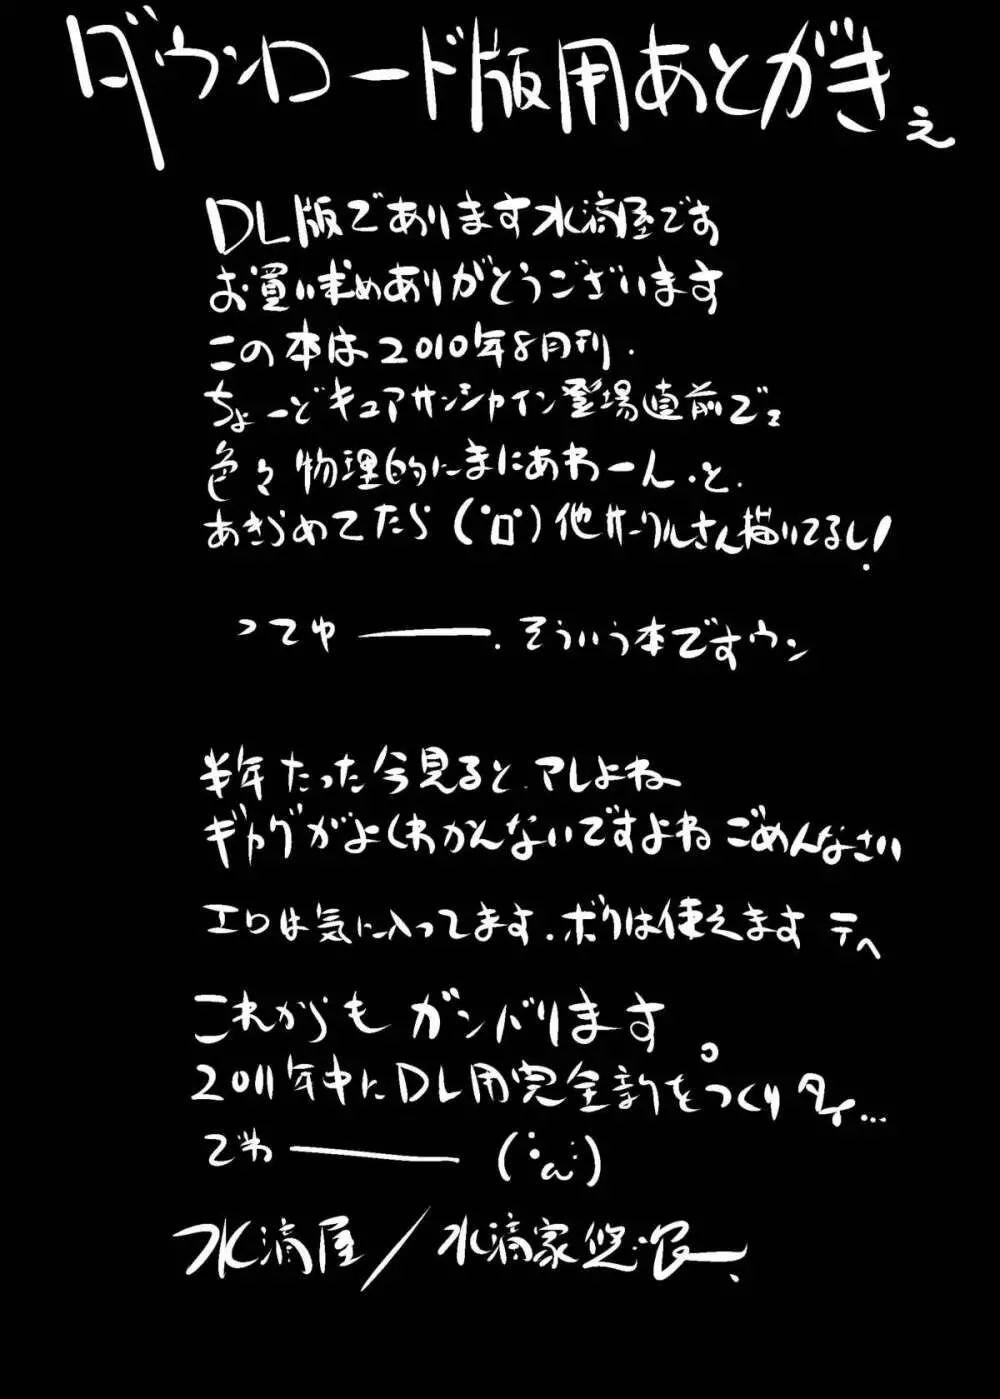 ダウンロード版用あとがきぇ
DL版であります水滴屋です
お買い求めありがとうございます
この本は2010年8月刊.
ちょーどキュアサンシャイン登場直前でェ
色々物理的にまにあわーん.と.
あきらめてたら(゚Д゚)他サークルさん描いてるし!
ってゆ――.そういう本ですウン
半年たった今見ると.アレよね
ギャグがよくわかんないですよねごめんなさい
エロは気に入ってます.ボクは使えます テヘ
これからもガンバります。
2011年中にDL用完全新をつくりタイ...
でわ――
水滴屋/水滴家悠